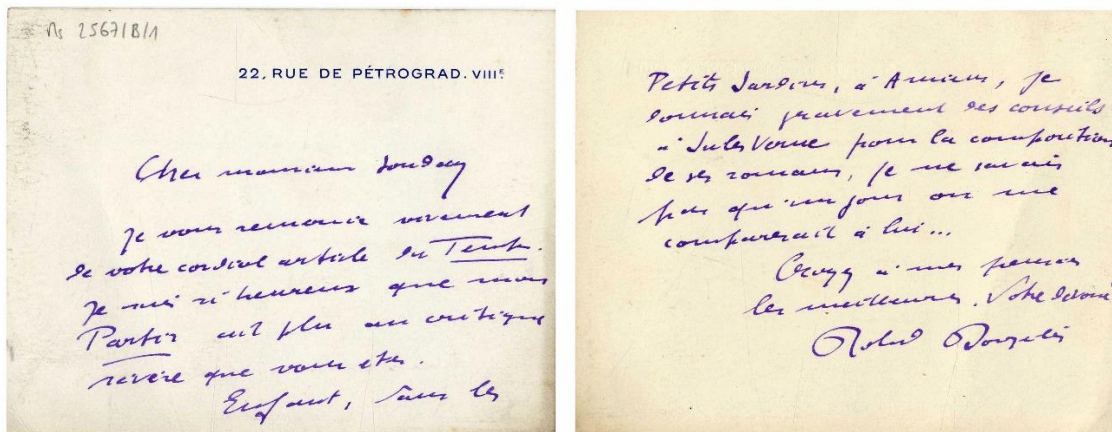 Ms 25671/B/1
22, RUE DE PÉTROGRAD. VIIIE
Cher monsieur Souday
Je vous remercie vivement
de votre cordial article du Temps.
Je suis si heureux que mon
Partir ait plu au critique
sévère que vous êtes.
Enfant, dans les
Petits Jardins, à Amiens, je
donnais gravement des conseils
à Jules Verne pour la composition
de ses romans, je ne savais
pas qu'un jour on me
comparerait à lui...
Croyez à mes pensées
les meilleures. Votre dévoué
Roland Dorgelès